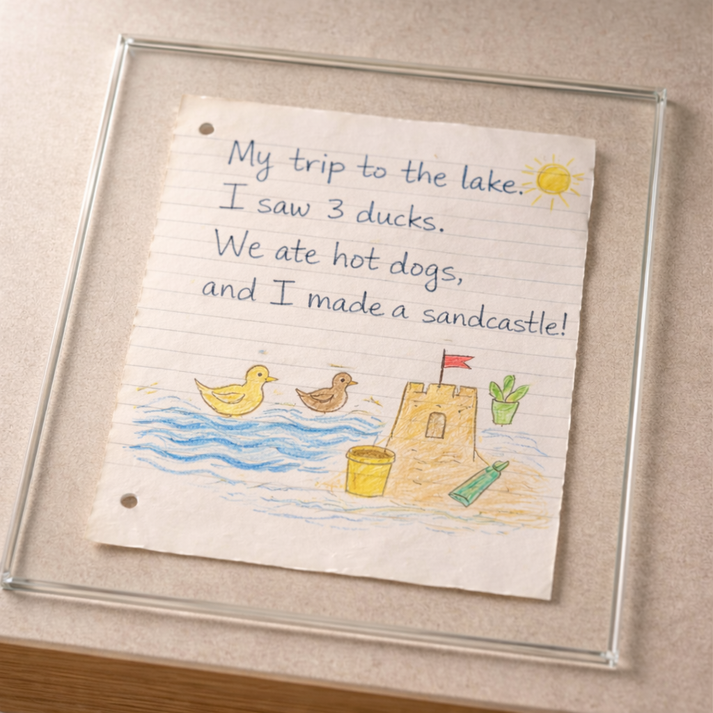 My trip to the lake.
I saw 3 ducks.
We ate hot dogs,
and I made a sandcastle!